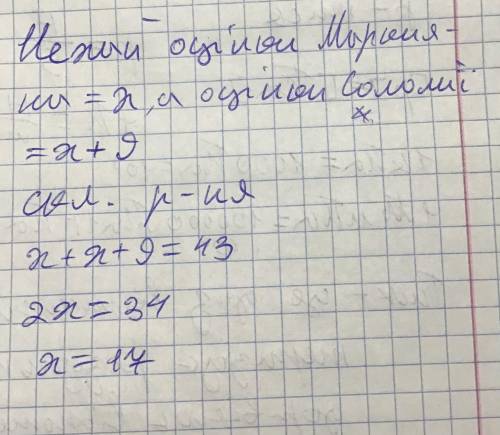 Нехай оцінки Мар'яни-
ни = x, а оцінки Соломії
= x + 9
скл. р-ня
x + x + 9 = 43
2x = 34
x = 17